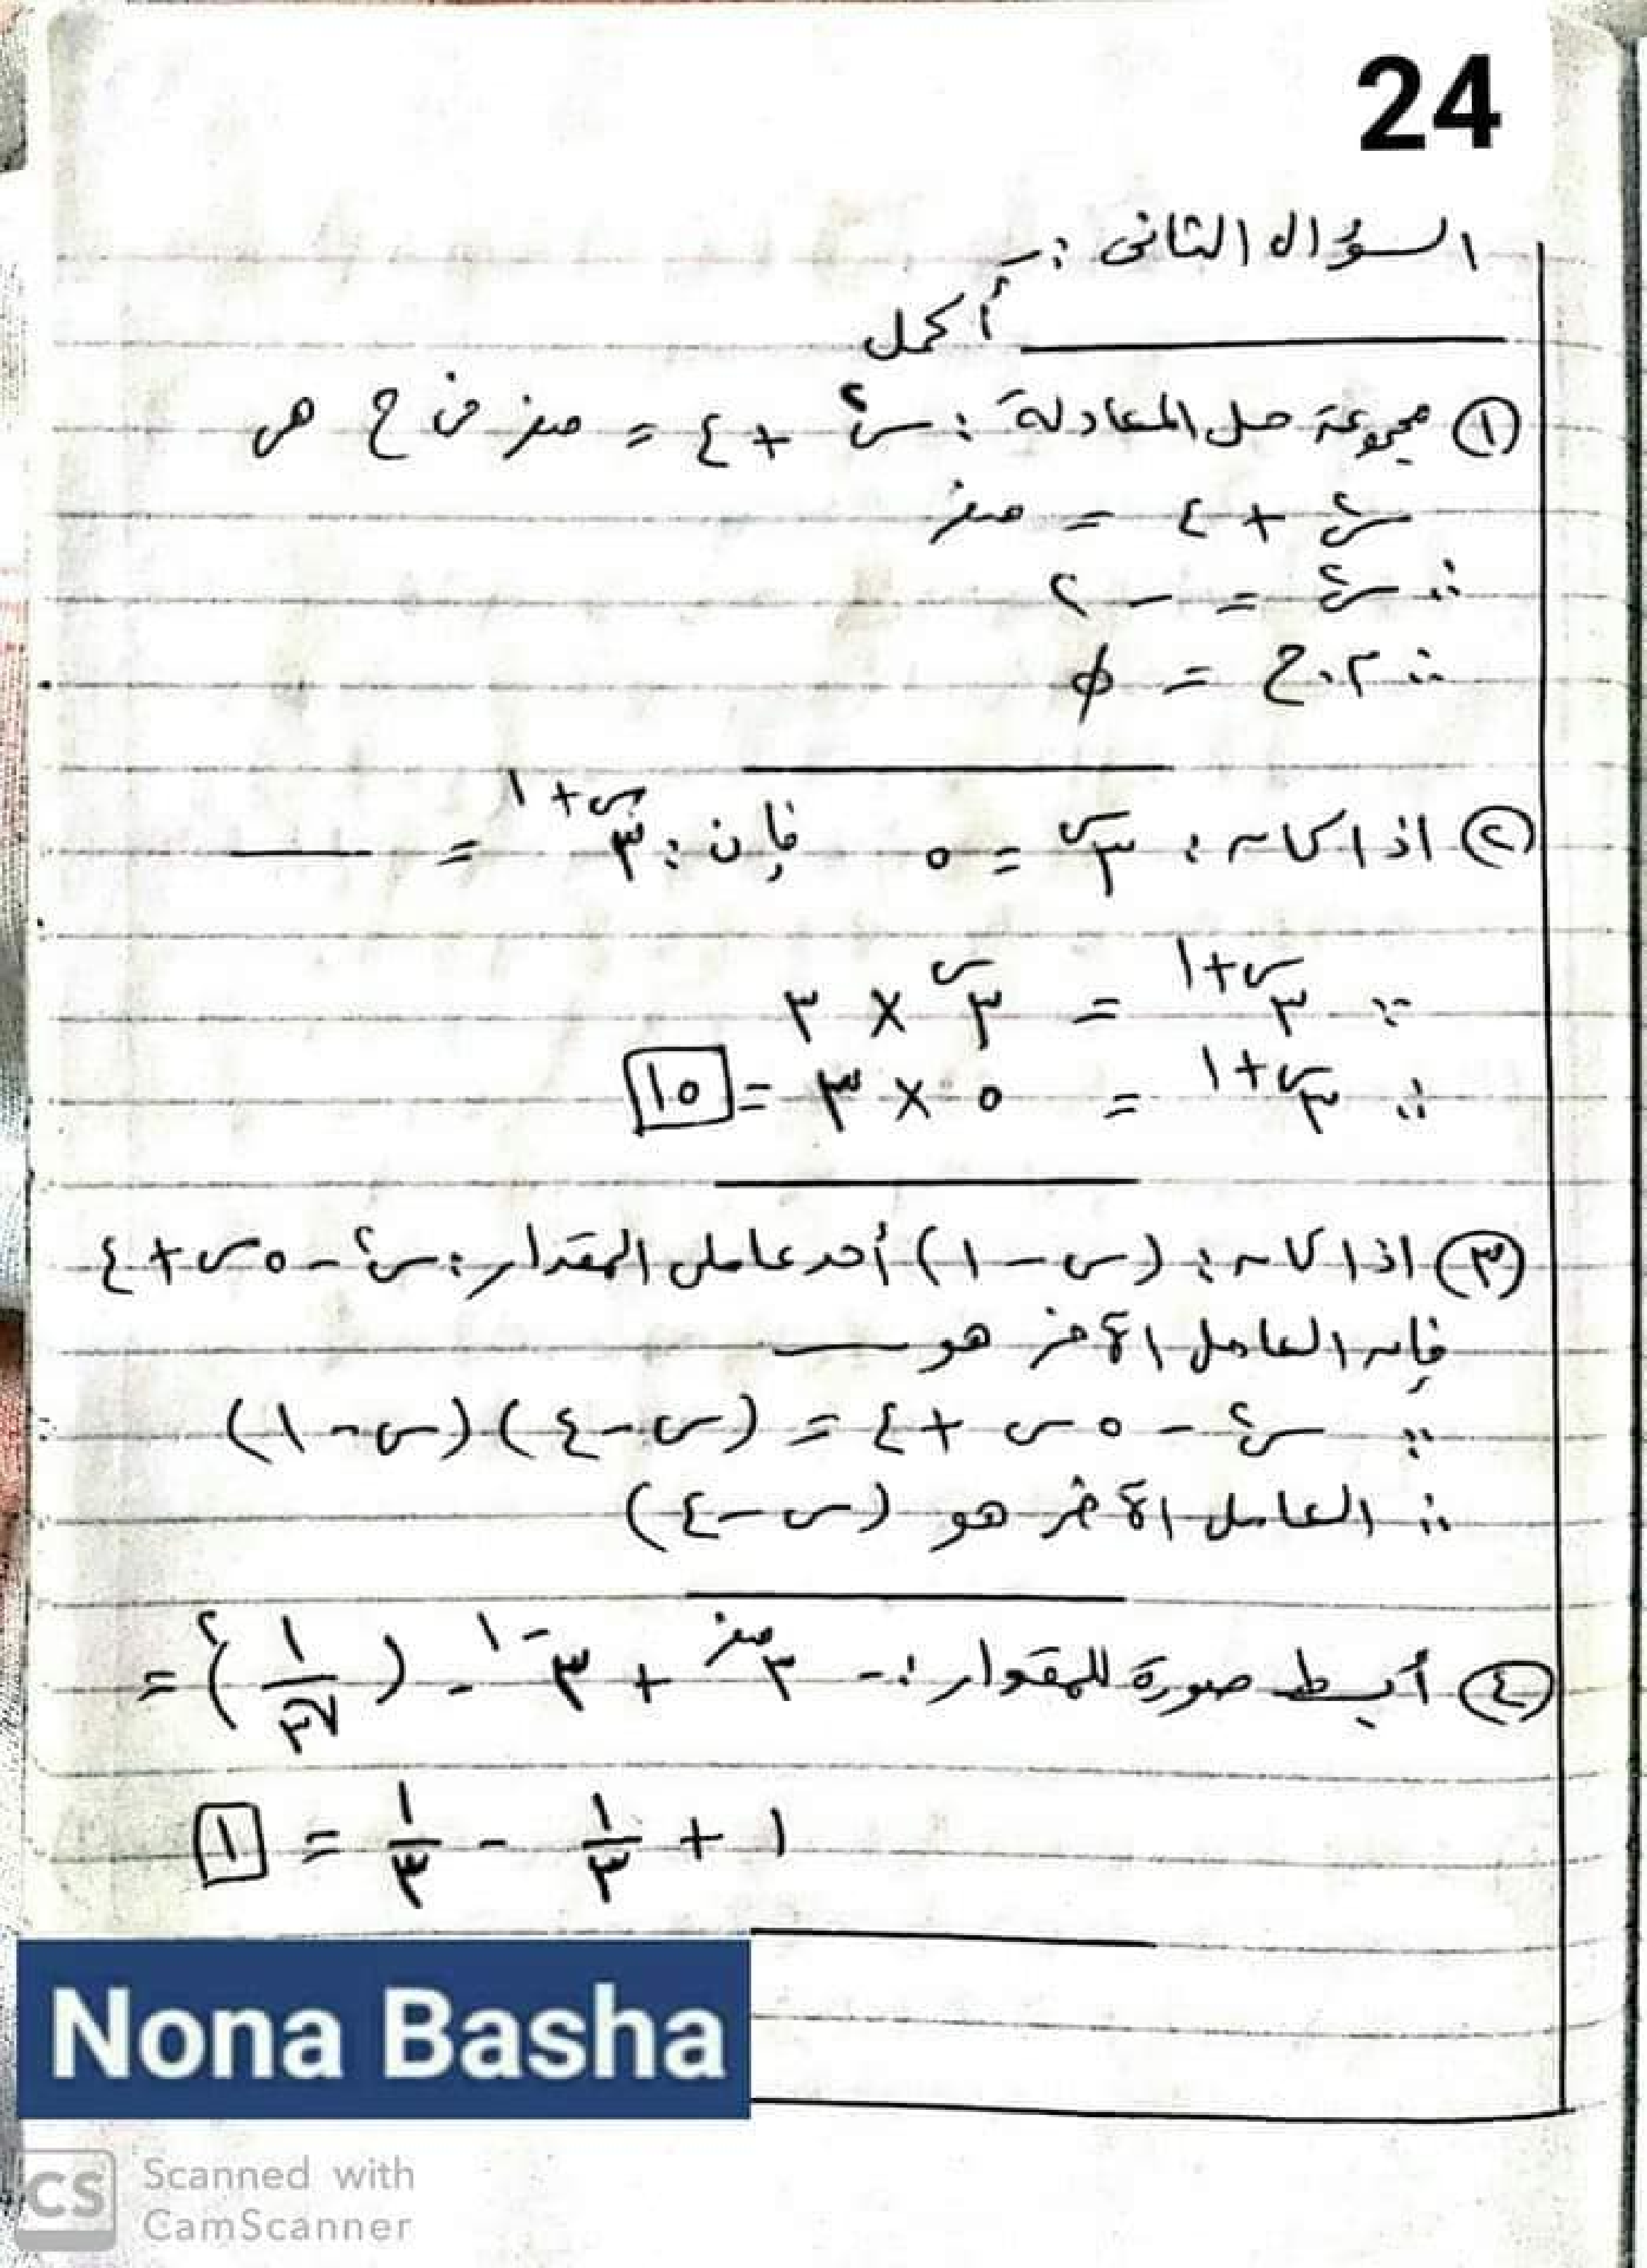 24
السؤال الثانى :-
أكمل
① مجموعة حل المعادلة : س٢ + ٤ = صفر فى ح هى
س٢ + ٤ = صفر
∴ س٢ = - ٢
∴ م.ح = ϕ
② اذا كان : ٣^س = ٥ فإن : ٣^(س+١) = ——
∵ ٣^(س+١) = ٣^س × ٣
∴ ٣^(س+١) = ٥ × ٣ = ١٥
③ اذا كان : (س - ١) أحد عاملى المقدار : س٢ - ٥س + ٤
فإن العامل الآخر هو ——
∵ س٢ - ٥س + ٤ = (س - ٤)(س - ١)
∴ العامل الآخر هو (س - ٤)
④ أبسط صورة للمقدار :- ٣^صفر + ٣^-١ - (١/√٣)^٢ =
١ + ١/٣ - ١/٣ = ١
Nona Basha
CS Scanned with
CamScanner